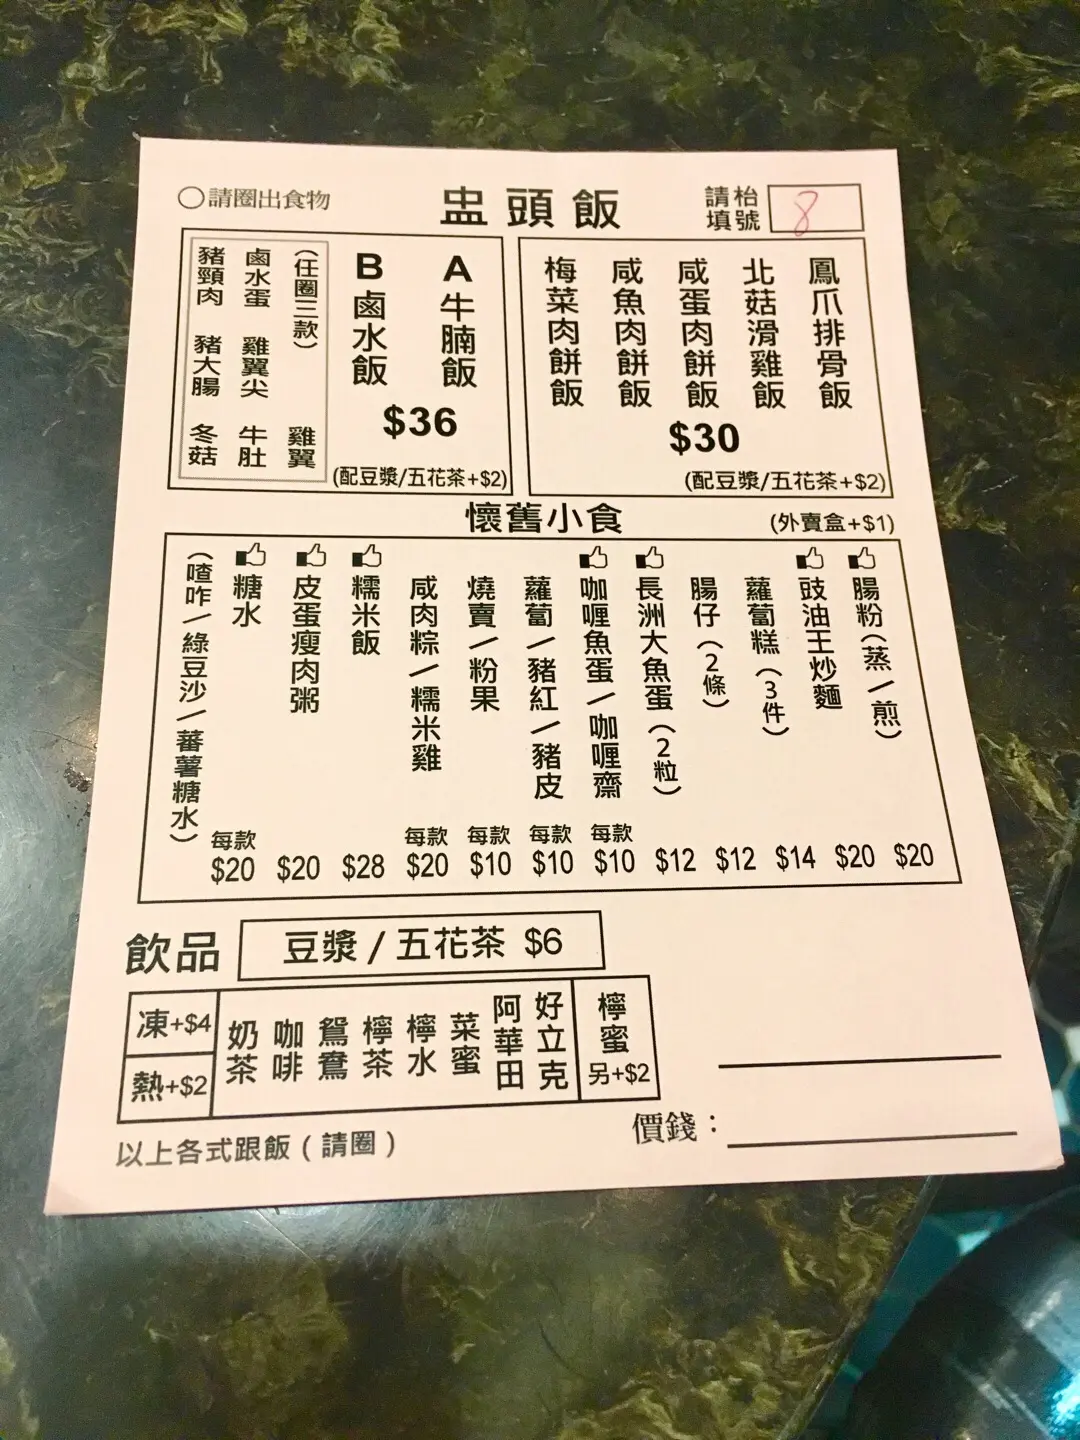 ○請圈出食物
盅頭飯
請填枱號
8
鳳爪排骨飯
北菇滑雞飯
咸蛋肉餅飯
咸魚肉餅飯
梅菜肉餅飯
$30
(配豆漿/五花茶+$2)
A牛腩飯
B鹵水飯
$36
(配豆漿/五花茶+$2)
(任圈三款) 雞翼
鹵水蛋 雞翼尖 牛肚
豬頸肉 豬大腸 冬菇
懷舊小食
(外賣盒+$1)
腸粉(蒸/煎) $20
豉油王炒麵 $20
蘿蔔糕(3件) $14
腸仔(2條) $12
長洲大魚蛋(2粒) $12
咖喱魚蛋/咖喱齋 每款 $10
蘿蔔/豬紅/豬皮 每款 $10
燒賣/粉果 每款 $10
咸肉粽/糯米雞 每款 $20
糯米飯 $28
皮蛋瘦肉粥 $20
糖水 每款 $20
(喳咋/綠豆沙/蕃薯糖水)
飲品
豆漿/五花茶 $6
凍+$4
熱+$2
奶茶
咖啡
鴛鴦
檸茶
檸水
菜蜜
阿華田
好立克
檸蜜
另+$2
以上各式跟飯(請圈)
價錢：